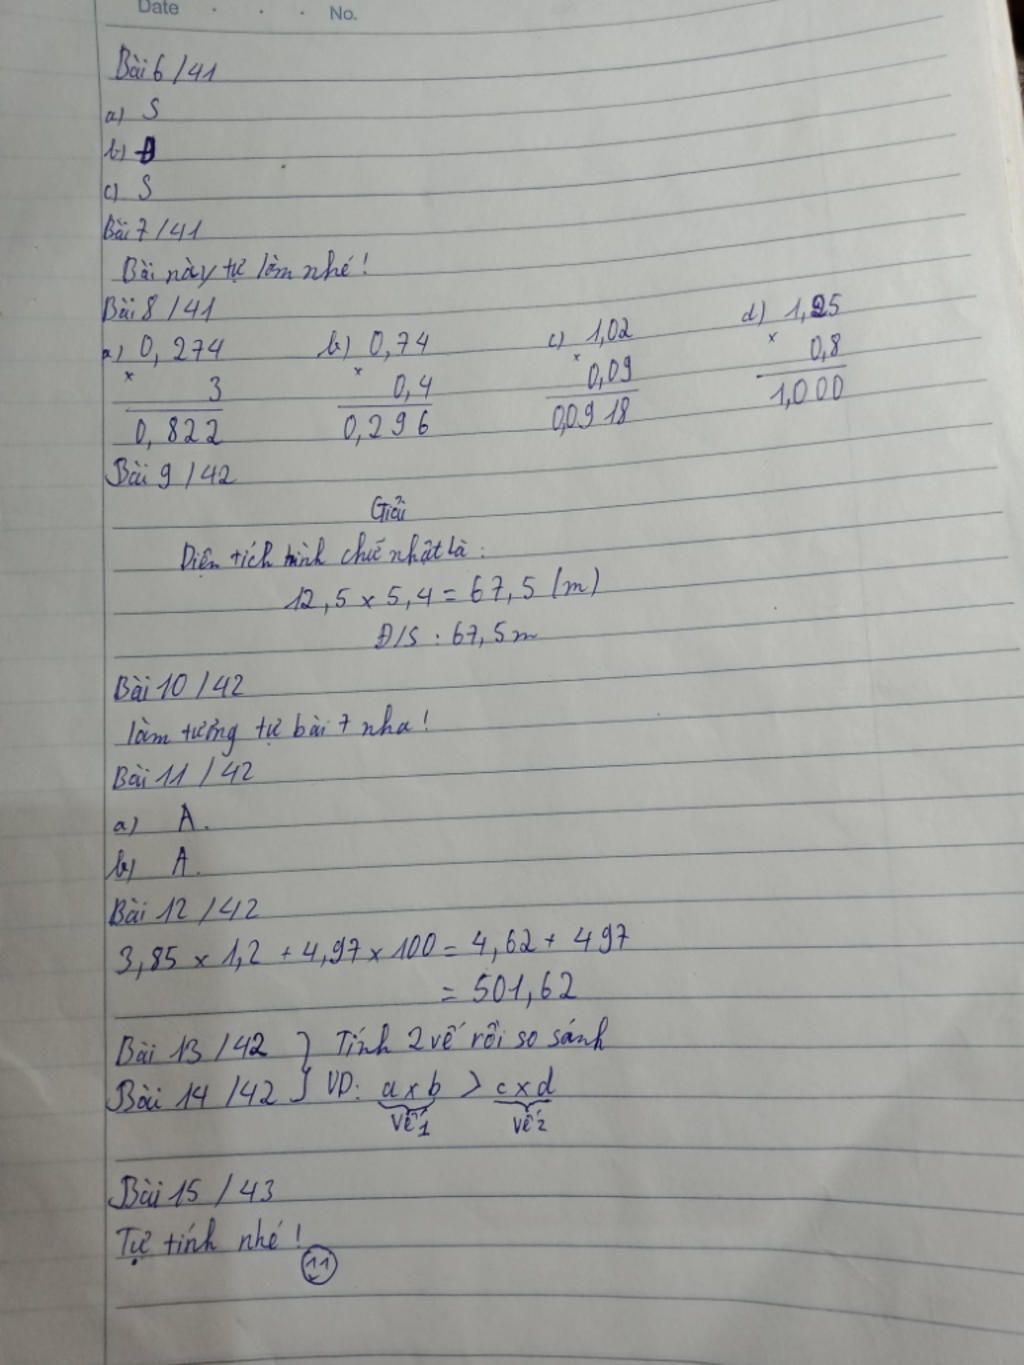 Date . . . No.
Bài 6 / 41
a) S
b) Đ
c) S
Bài 7 / 41
Bài này tự làm nhé !
Bài 8 / 41
a) 0,274 b) 0,74 c) 1,02 d) 1,25
x 3 x 0,4 x 0,09 x 0,8
0,822 0,296 0,0918 1,000
Bài 9 / 42
Giải
Diện tích hình chữ nhật là :
12,5 x 5,4 = 67,5 (m)
Đ/S : 67,5 m
Bài 10 / 42
làm tương tự bài 7 nha !
Bài 11 / 42
a) A.
b) A.
Bài 12 / 42
3,85 x 1,2 + 4,97 x 100 = 4,62 + 497
= 501,62
Bài 13 / 42 } Tính 2 vế rồi so sánh
Bài 14 / 42 } VD: a x b > c x d
vế 1 vế 2
Bài 15 / 43
Tự tính nhé !
11